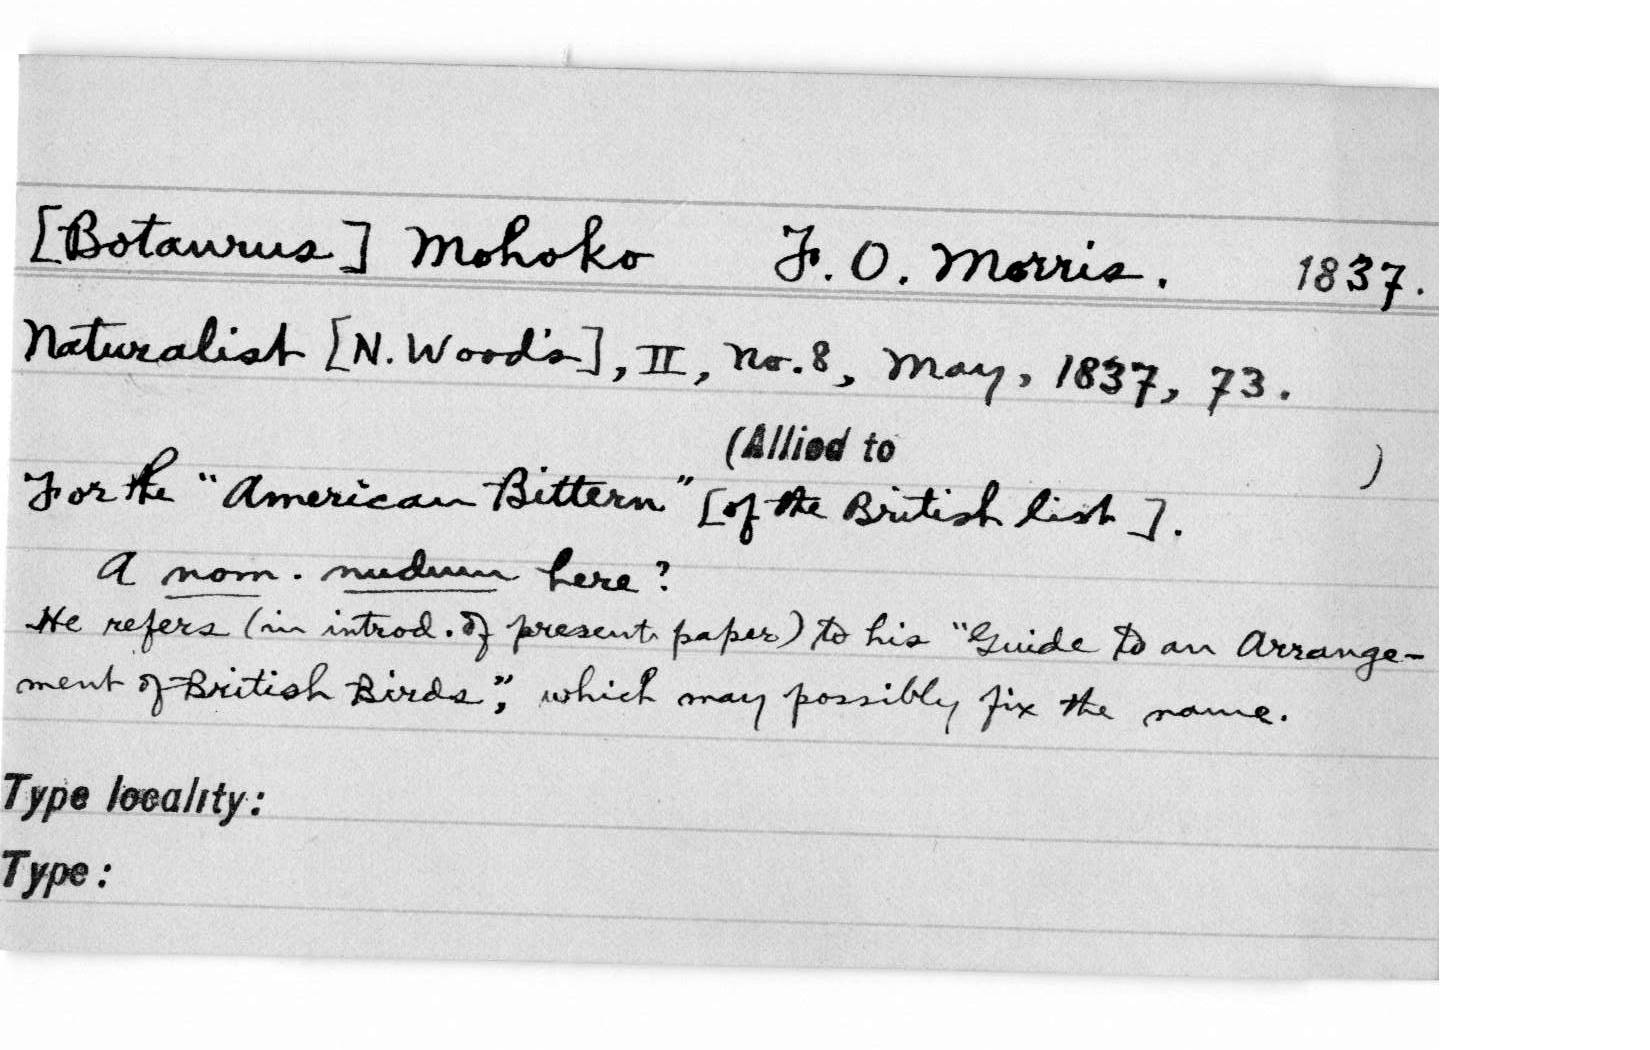 [Botaurus] Mohoko F. O. Morris. 1837.
Naturalist [N. Wood's], II, No. 8, May, 1837, 73.
(Allied to )
For the "American Bittern" [of the British list].
A nom. nudum here?
He refers (in introd. of present paper) to his "Guide to an Arrange-
ment of British Birds", which may possibly fix the name.
Type locality:
Type: